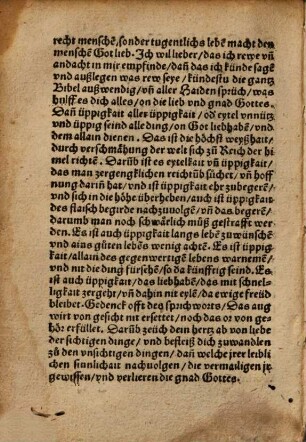 recht menschē/sonder tugentlichs lebē macht den
menschē Got lieb. Ich wil lieber/das ich rewe vñ
andacht in mir empfinde/dañ das ich künde sagē
vnd außlegen was rew seye/ kündestu die gantz
Bibel außwendig/ vñ aller Haiden sprüch/ was
hulff es dich alles/on die lieb vnd gnad Gottes.
Dañ üppigkait aller üppigkait/ od eytel vnnütz
vnd üppig seind alle ding/on Got liebhabē/vnd
dem allain dienen. Das ist die höchst weyßhait/
durch verschmähung der welt sich zů Reich der hi
mel richtē. Darūb ist es eytelkait vñ üppigkait/
das man zergengklichen reichtūb sůchet/ vñ hoff
nung darin hat/vnd ist üppigkait ehr zubegerē/
vnd sich in die höhe überheben/auch ist üppigkait
des flaisch begirde nachzuuolgē/ vñ das begerē/
darumb man noch schwärlich můß gestrafft wer
den. Es ist auch üppigkait langs lebē zuwünschē
vnd ains gůten lebēs wenig achtē. Es ist üppig
kait/allain des gegenwertigē lebens warnemē/
vnd nit die ding fürsehē/so da künfftig seind. Es
ist auch üppigkait/das liebhabē/das mit schnel-
ligkait zergeht/vñ dahin nit eylē/da ewige freüd
bleibet. Gedenck offt des sprichworts/ Das aug
wirt von gesicht nit ersettet/noch das or von ge
hör erfüllet. Darūb zeüch dein hertz ab von liebe
der sichtigen dinge/ vnd befleiß dich zuwandlen
zů den vnsichtigen dingen/ dañ welche jrer leiblic
chen sinnlichait nachuolgen/ die vermailigen jr
gewissen/vnd verlieren die gnad Gottes.